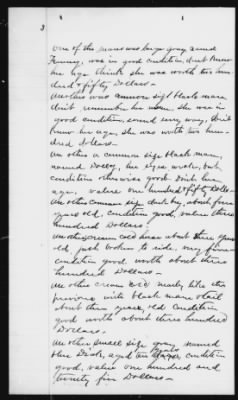 3
One of the mares was large gray named
Fanny, was in good condition, don't know
her age think she was worth two hun-
dred & fifty Dollars -
Another was common size black mare
don't remember her name, she was in
good condition, sound every way, don't
know her age, she was worth two hun-
dred dollars -
An other a common size black mare,
named Dolly, her eyes weak, but
condition other wise good. Don't know
age, value one hundred & fifty Dolls -
An other common size dark bay, about four
years old, condition good, value three
hundred Dollars -
An other cream cold horse about three years
old just broken to ride, very fine
condition good worth about three
hundred Dollars -
An other cream cold nearly like the
previous with black mane & tail
about three years old Condition
good worth about three hundred
Dollars.
An other small size gray named
blue Dick, aged ten years, condition
good, value one hundred and
twenty five Dollars -